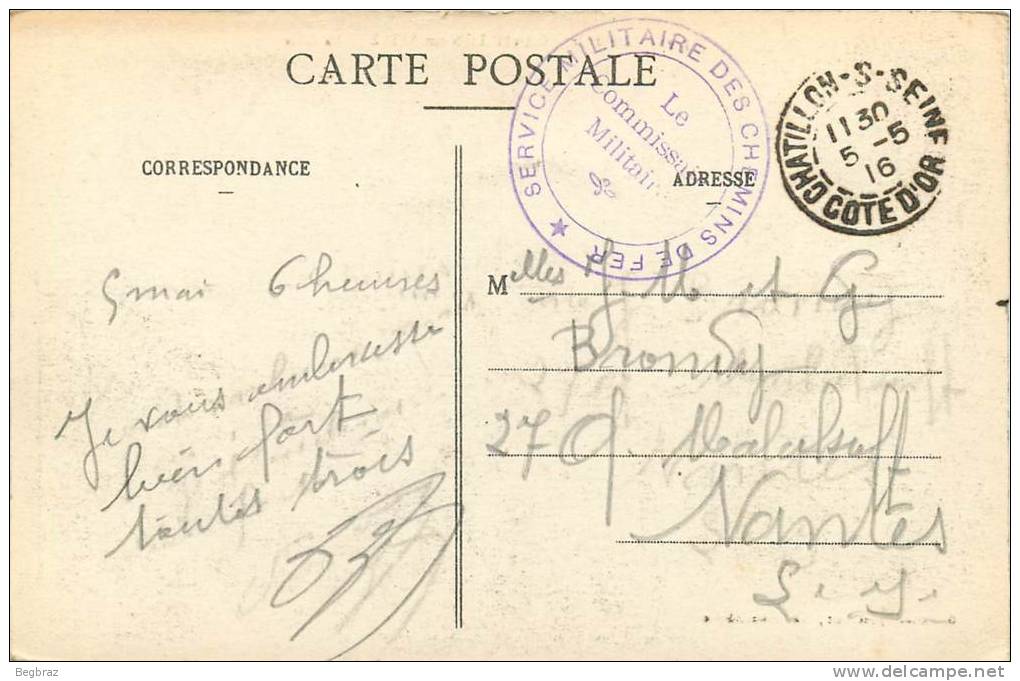 CARTE POSTALE
CORRESPONDANCE
ADRESSE
SERVICE MILITAIRE DES CHEMINS DE FER ★
Le
Commissai
Militai
CHATILLON-S-SEINE
11 30
5 -5
16
COTE D'OR
5 mai 6 heures
Je vous embrasse
bien fort
toutes trois
Melles M et G
27
Nantes
Begbraz
www.delcampe.net